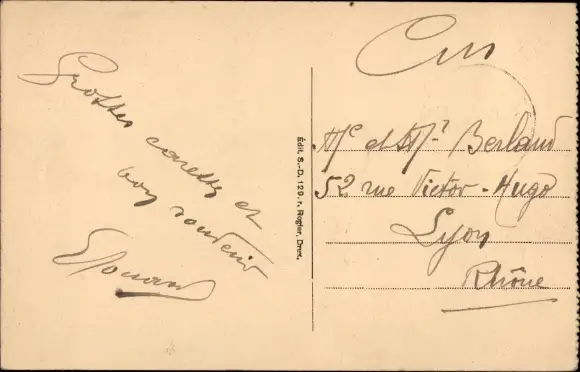 Grosses caresses et
bon souvenir
Edouard
Édit. S.-D. 129, r. Rogier, Brux.
Mr et Mme Berland
52 rue Victor-Hugo
Lyon
Rhône